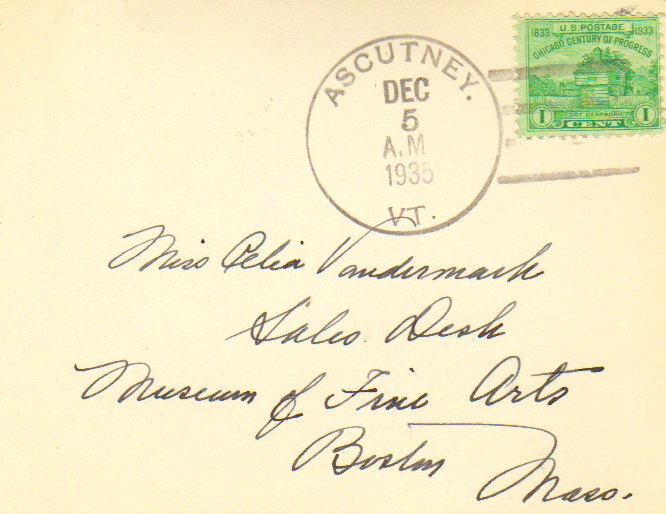 U.S. POSTAGE
1833 1933
CHICAGO CENTURY OF PROGRESS
FORT DEARBORN
1 CENT 1
ASCUTNEY.
DEC
5
A.M
1935
VT.
Miss Celia Vandermark
Sales Desk
Museum of Fine Arts
Boston
Mass.